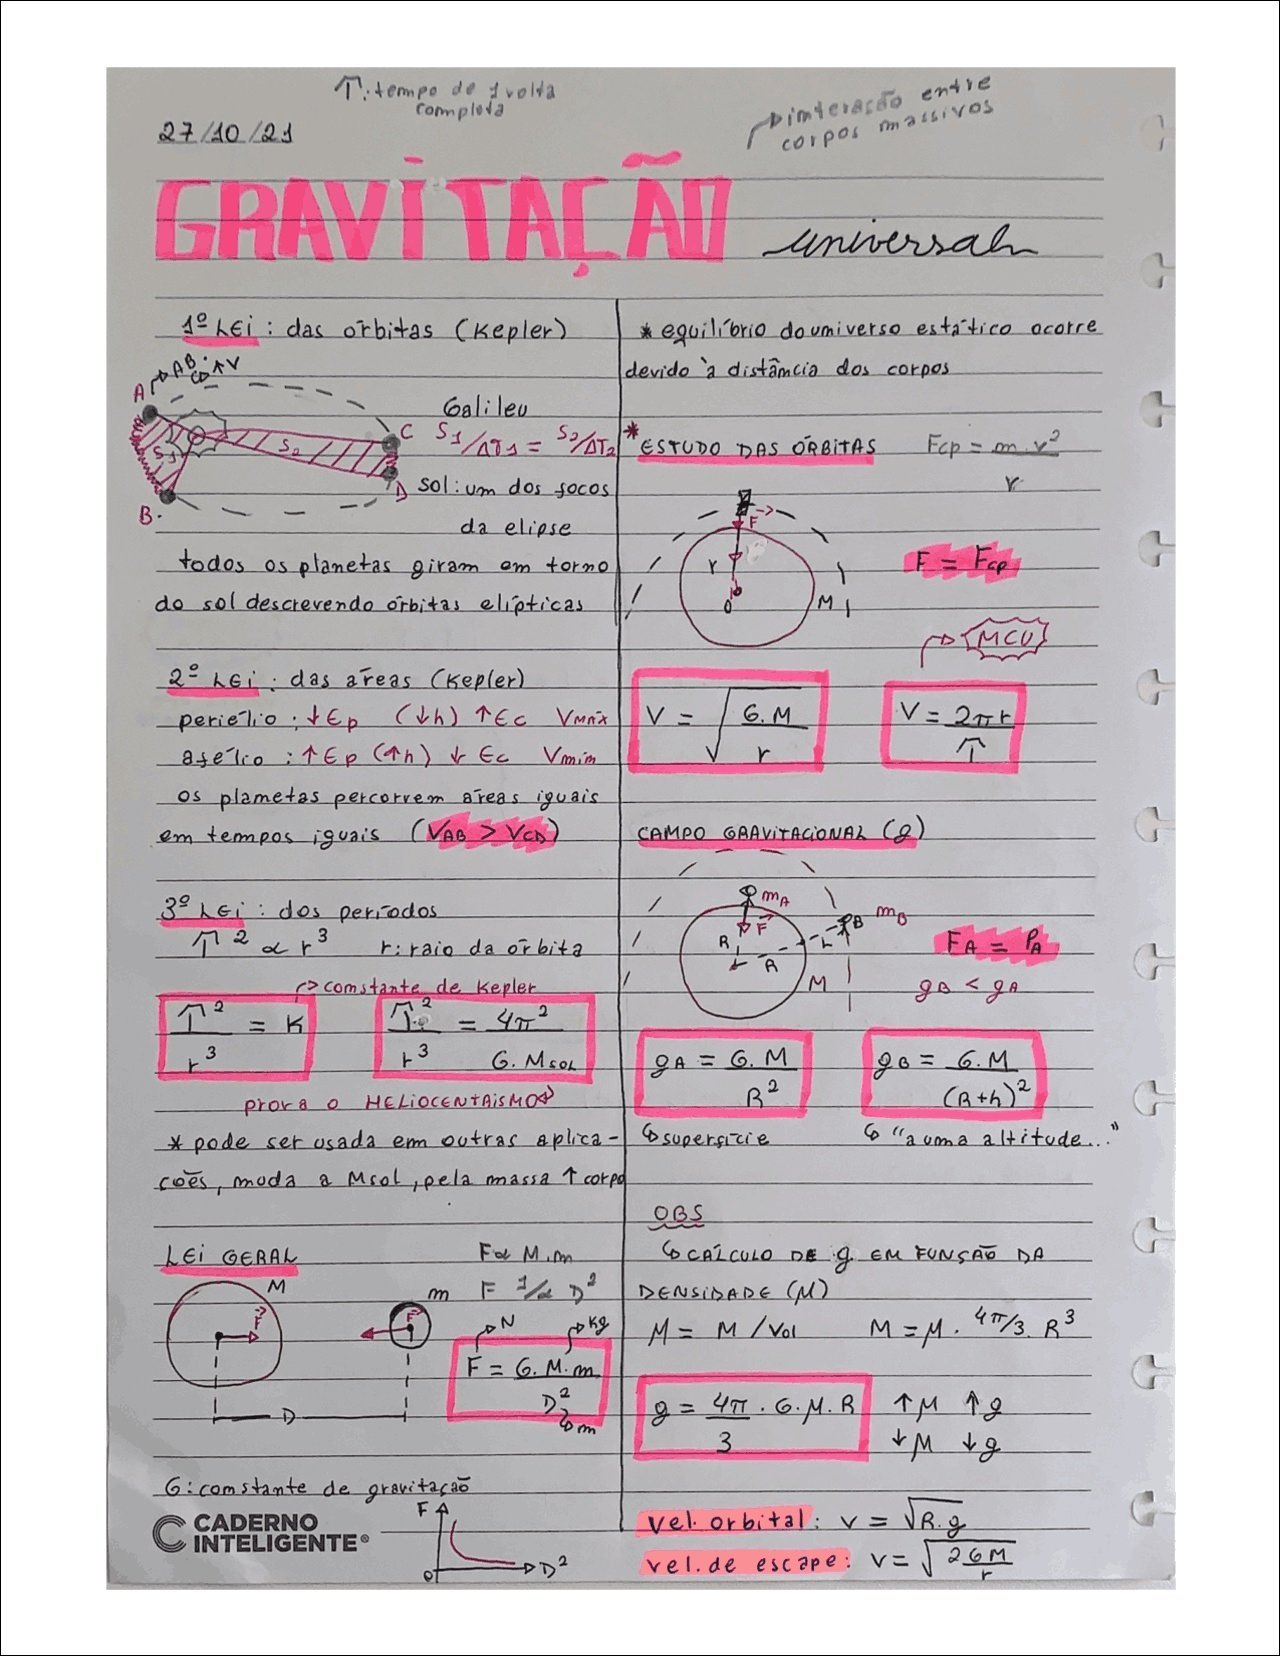 T: tempo de 1 volta
completa
27/10/21
interação entre
corpos massivos
GRAVITAÇÃO universal
1º LEI: das órbitas (Kepler)
AB: ↑V
A
S1
S2
C
D
B
Galileu
S1/ΔT1 = S2/ΔT2
sol: um dos focos
da elipse
todos os planetas giram em torno
do sol descrevendo órbitas elípticas
2º LEI: das áreas (Kepler)
periélio: ↓Ep (↓h) ↑Ec Vmáx
afélio: ↑Ep (↑h) ↓Ec Vmin
os planetas percorrem áreas iguais
em tempos iguais (VAB > VCD)
3º LEI: dos períodos
T² ∝ r³ r: raio da órbita
constante de Kepler
T²/r³ = K
T²/r³ = 4π²/G.Msol
prova o HELIOCENTRISMO
* pode ser usada em outras aplica-
cões, muda a Msol, pela massa ↑ corpo
LEI GERAL
F∝ M.m
F 1/∝ D²
M
F
m
F
D
N
kg
F = G.M.m/D²
m
G: constante de gravitação
F
0
D²
CADERNO
INTELIGENTE®
* equilíbrio do universo estático ocorre
devido à distância dos corpos
* ESTUDO DAS ÓRBITAS
Fcp = m.v²/r
F
r
0
M
F = Fcp
MCU
V = √G.M/r
V = 2πr/T
CAMPO GRAVITACIONAL (g)
mA
F
R
R
h
B
mB
M
FA = PA
gB < gA
gA = G.M/R²
gB = G.M/(R+h)²
superfície
"a uma altitude..."
OBS
CÁLCULO DE g EM FUNÇÃO DA
DENSIDADE (μ)
μ = M/Vol M = μ. 4π/3. R³
g = 4π/3 . G.μ.R
↑μ ↑g
↓μ ↓g
vel. orbital: v = √R.g
vel. de escape: v = √2GM/r